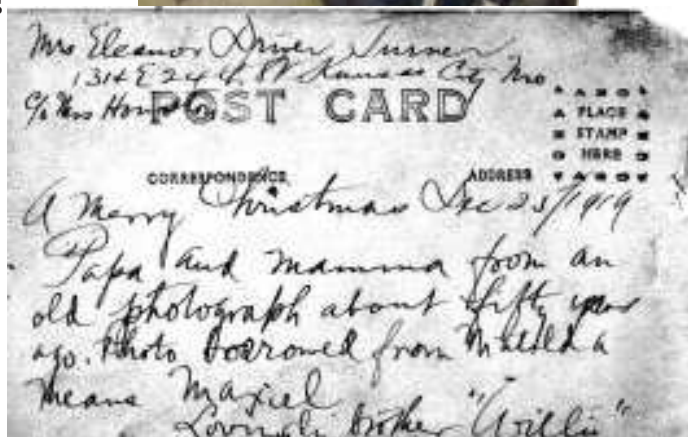 Mrs Eleanor Driver Turner
1314 E 24th St Kansas City Mo
c/o Mrs
POST CARD
PLACE
STAMP
HERE
CORRESPONDENCE
ADDRESS
A Merry Christmas Dec 23/1919
Papa and Mamma from an
old photograph about fifty years
ago. Photo borrowed from Matilda
Means Maxiel
Lovingly Brother "Willie"